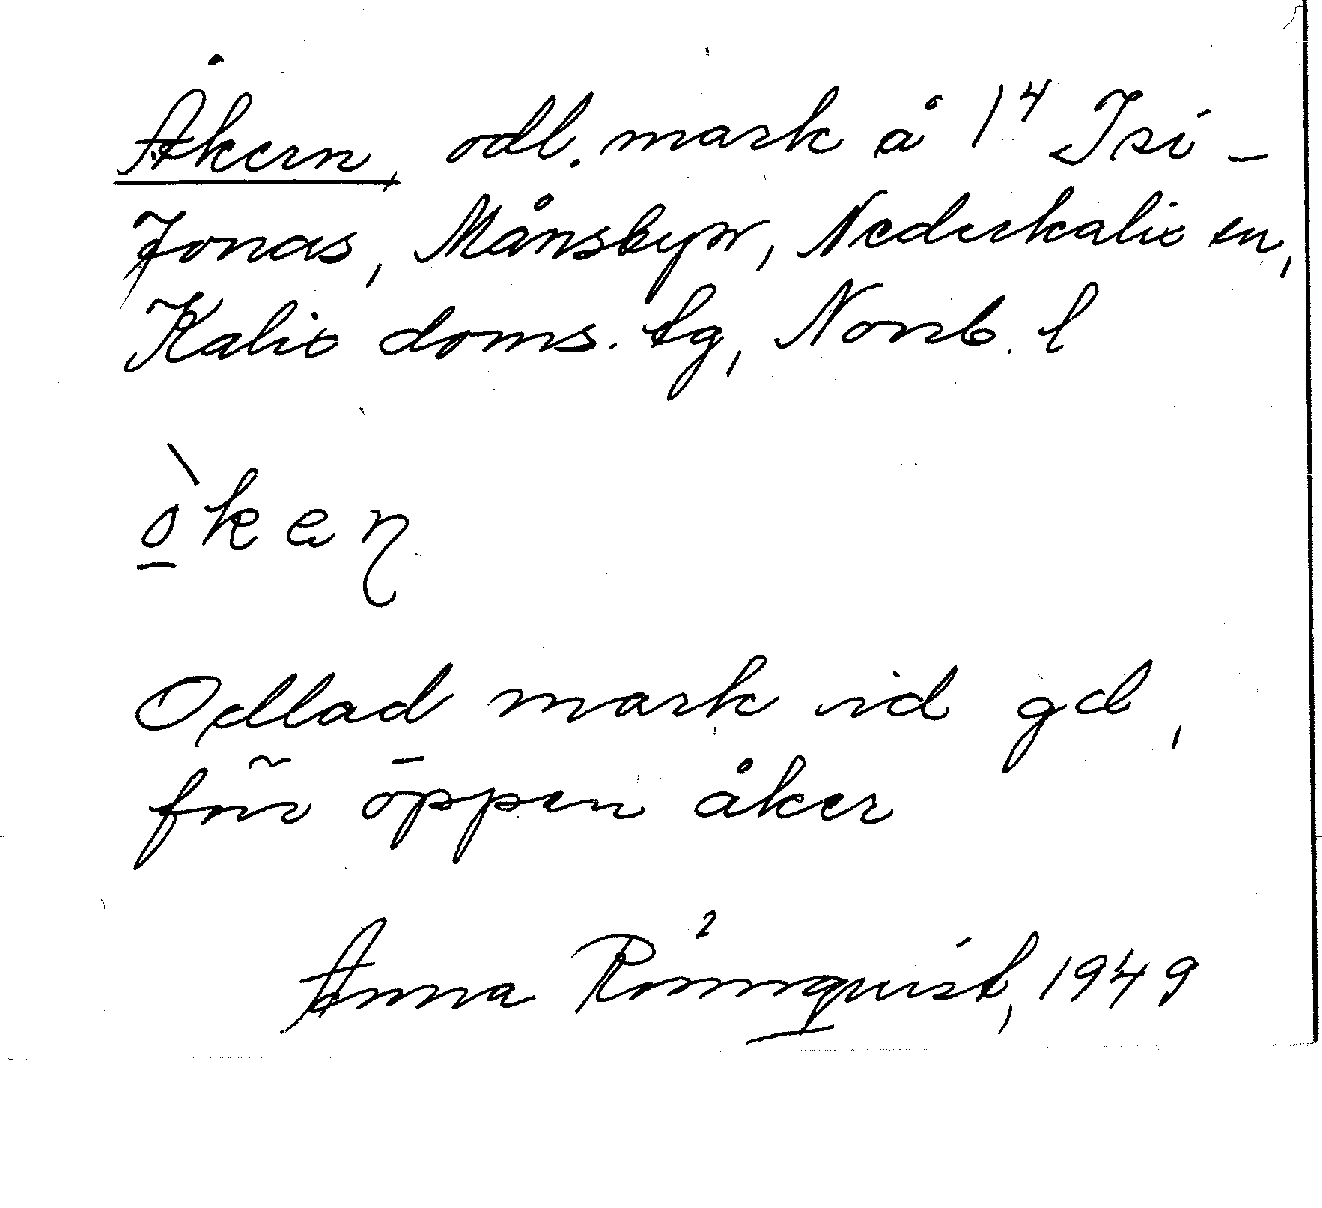 Åkern, odl. mark å 1⁴ Isi-
Jonas, Månsbyn, Nederkalix sn,
Kalix doms. tg, Norrb. l
ò̲keṇ
Odlad mark vid gd,
förr öppen åker
Anna Rönnquist, 1949